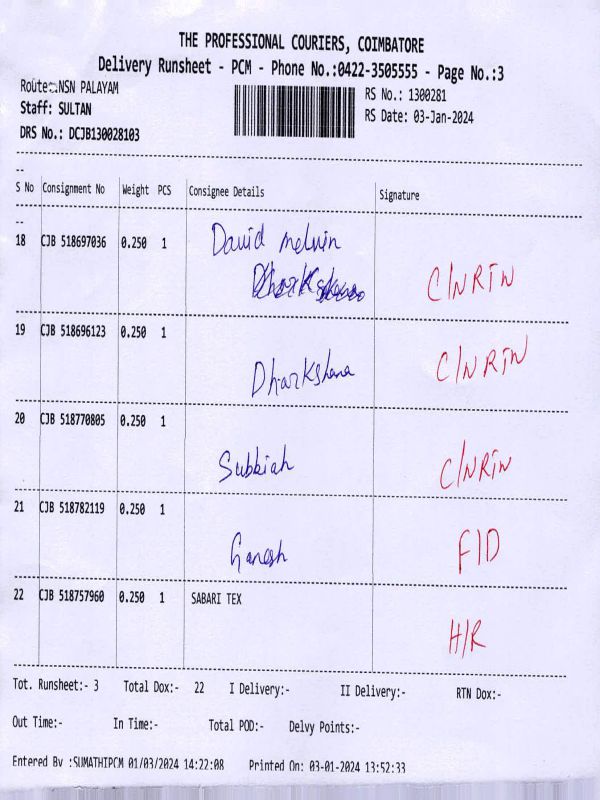 THE PROFESSIONAL COURIERS, COIMBATORE
Delivery Runsheet - PCM - Phone No.:0422-3505555 - Page No.:3
Route:.NSN PALAYAM RS No.: 1300281
Staff: SULTAN RS Date: 03-Jan-2024
DRS No.: DCJB130028103
S No Consignment No Weight PCS Consignee Details Signature
18 CJB 518697036 0.250 1 David Melvin
C/NRTN
19 CJB 518696123 0.250 1
Dharkshana C/NRTN
20 CJB 518770805 0.250 1
Subbiah C/NRTN
21 CJB 518782119 0.250 1
Ganesh FID
22 CJB 518757960 0.250 1 SABARI TEX
H/R
Tot. Runsheet:- 3 Total Dox:- 22 I Delivery:- II Delivery:- RTN Dox:-
Out Time:- In Time:- Total POD:- Delvy Points:-
Entered By :SUMATHIPCM 01/03/2024 14:22:08 Printed On: 03-01-2024 13:52:33